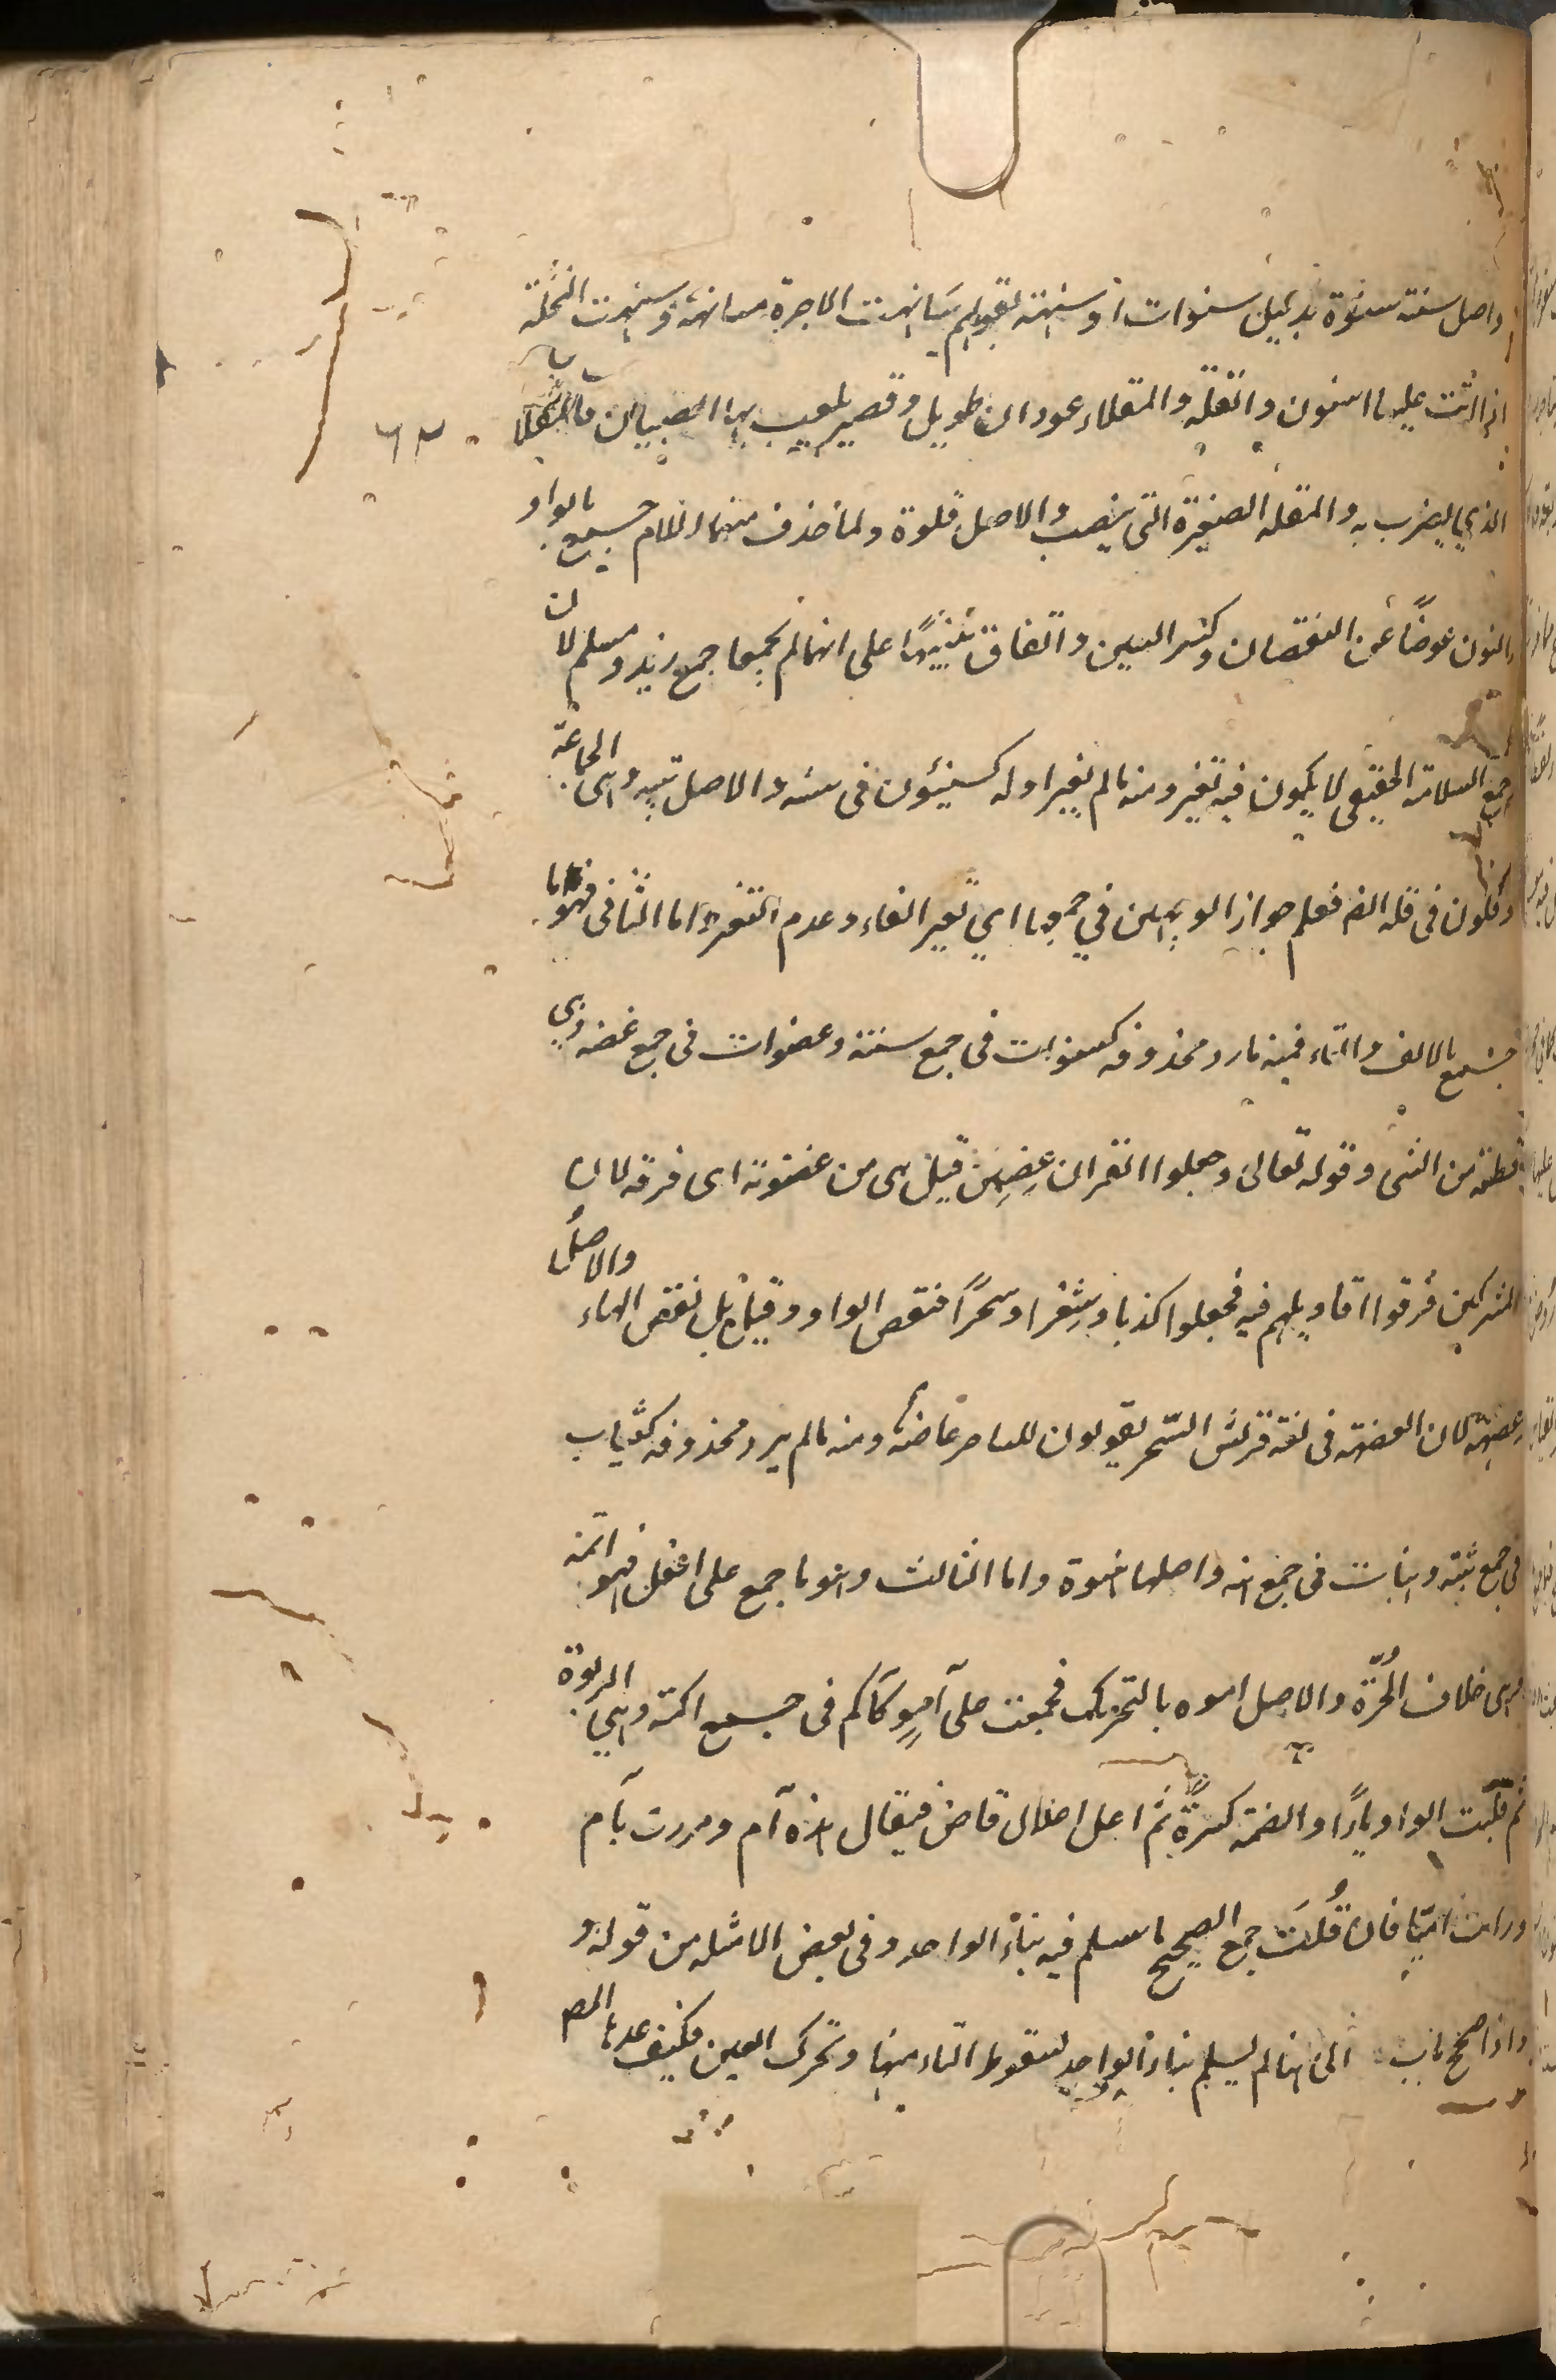 واصل سنة سنوة بدليل سنوات او سنهة لقولهم سانهت الاجرة مسانهة وسنهت النخلة
اذا اتت عليها السنون والقلة والمقلاء عودان طويل وقصير يلعب بها الصبيان فالمقلا
الذي يضرب به والقلة الصغيرة التي ينصب والاصل قلوة ولما حذف منهما اللام جمع بالواو
والنون عوضًا عن النقصان وكسر السين والقاف تنبيهًا على انهما لم يجمعا جمع زيد ومسلم لان
جمع السلامة الحقيقي لا يكون فيه تغير ومنه ما لم يغير اوله كسنيئون في سنه والاصل ثبيه وهي الجماعة
وقلون في قله الف فعلم جواز الوجهين في جمعها اي تغير الفاء وعدم التغير واما الثاني فهو ما
جمع بالالف والتاء فمنه ما رد محذوفه كسنوات في جمع سنة وعضوات في جمع عضه وهي
قطعة من الشي وقوله تعالى وجعلوا القران عضين قيل هي من عضوته اى فرقته لان
المشركين فرقوا اقاويلهم فيه فجعلوا كذبا وشعرا وسحرًا فنقص الواو وقيل بل نقص الهاء والاصل
عضهة لان العضهة في لغة قريش السحر يقولون للساحر عاضه ومنه ما لم يرد محذوفه كثبات
في جمع ثبة وهنات في جمع هنه واصلها هنوة واما الثالث وهو ما جمع على افعل فهو امة
وهى خلاف الحُرّة والاصل اموه بالتحريك فجمعت على آمو كآكم في جمع اكمة وهي الربوة
ثم قلبت الواو ياءً والضمة كسرةً ثم اعل اعلال قاض فيقال هذه آم ومررت بآم
ورايت آميا فان قُلتَ جمع الصحيح ما سلم فيه بناء الواحد وفي بعض الامثلة من قوله و
واذا صح باب الى هنا لم يسلم بناء الواحد لسقوط التاء منها وتحرك العين فكيف عدها المص